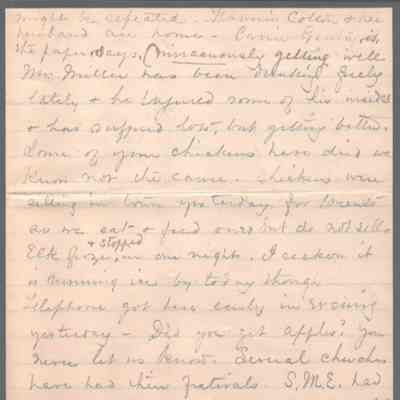 might be defeated. Fannie Colter & her
husband are home - Carrie is,
the paper says, miraculously getting well
Mrs. Miller has been drinking freely
lately & he injured some of his insides
& has suffered lots, but getting better.
Some of your chickens have died we
know not the cause. Chickens were
selling in town yesterday for
as we eat & feed ours but do not sell
Elk froze, & stopped in one night. I reckon it
is running ice by today though
Telephone got here early in evening
yesterday - Did you get apples? You
never let us know. Several churches
have had their festivals. S.M.E. had